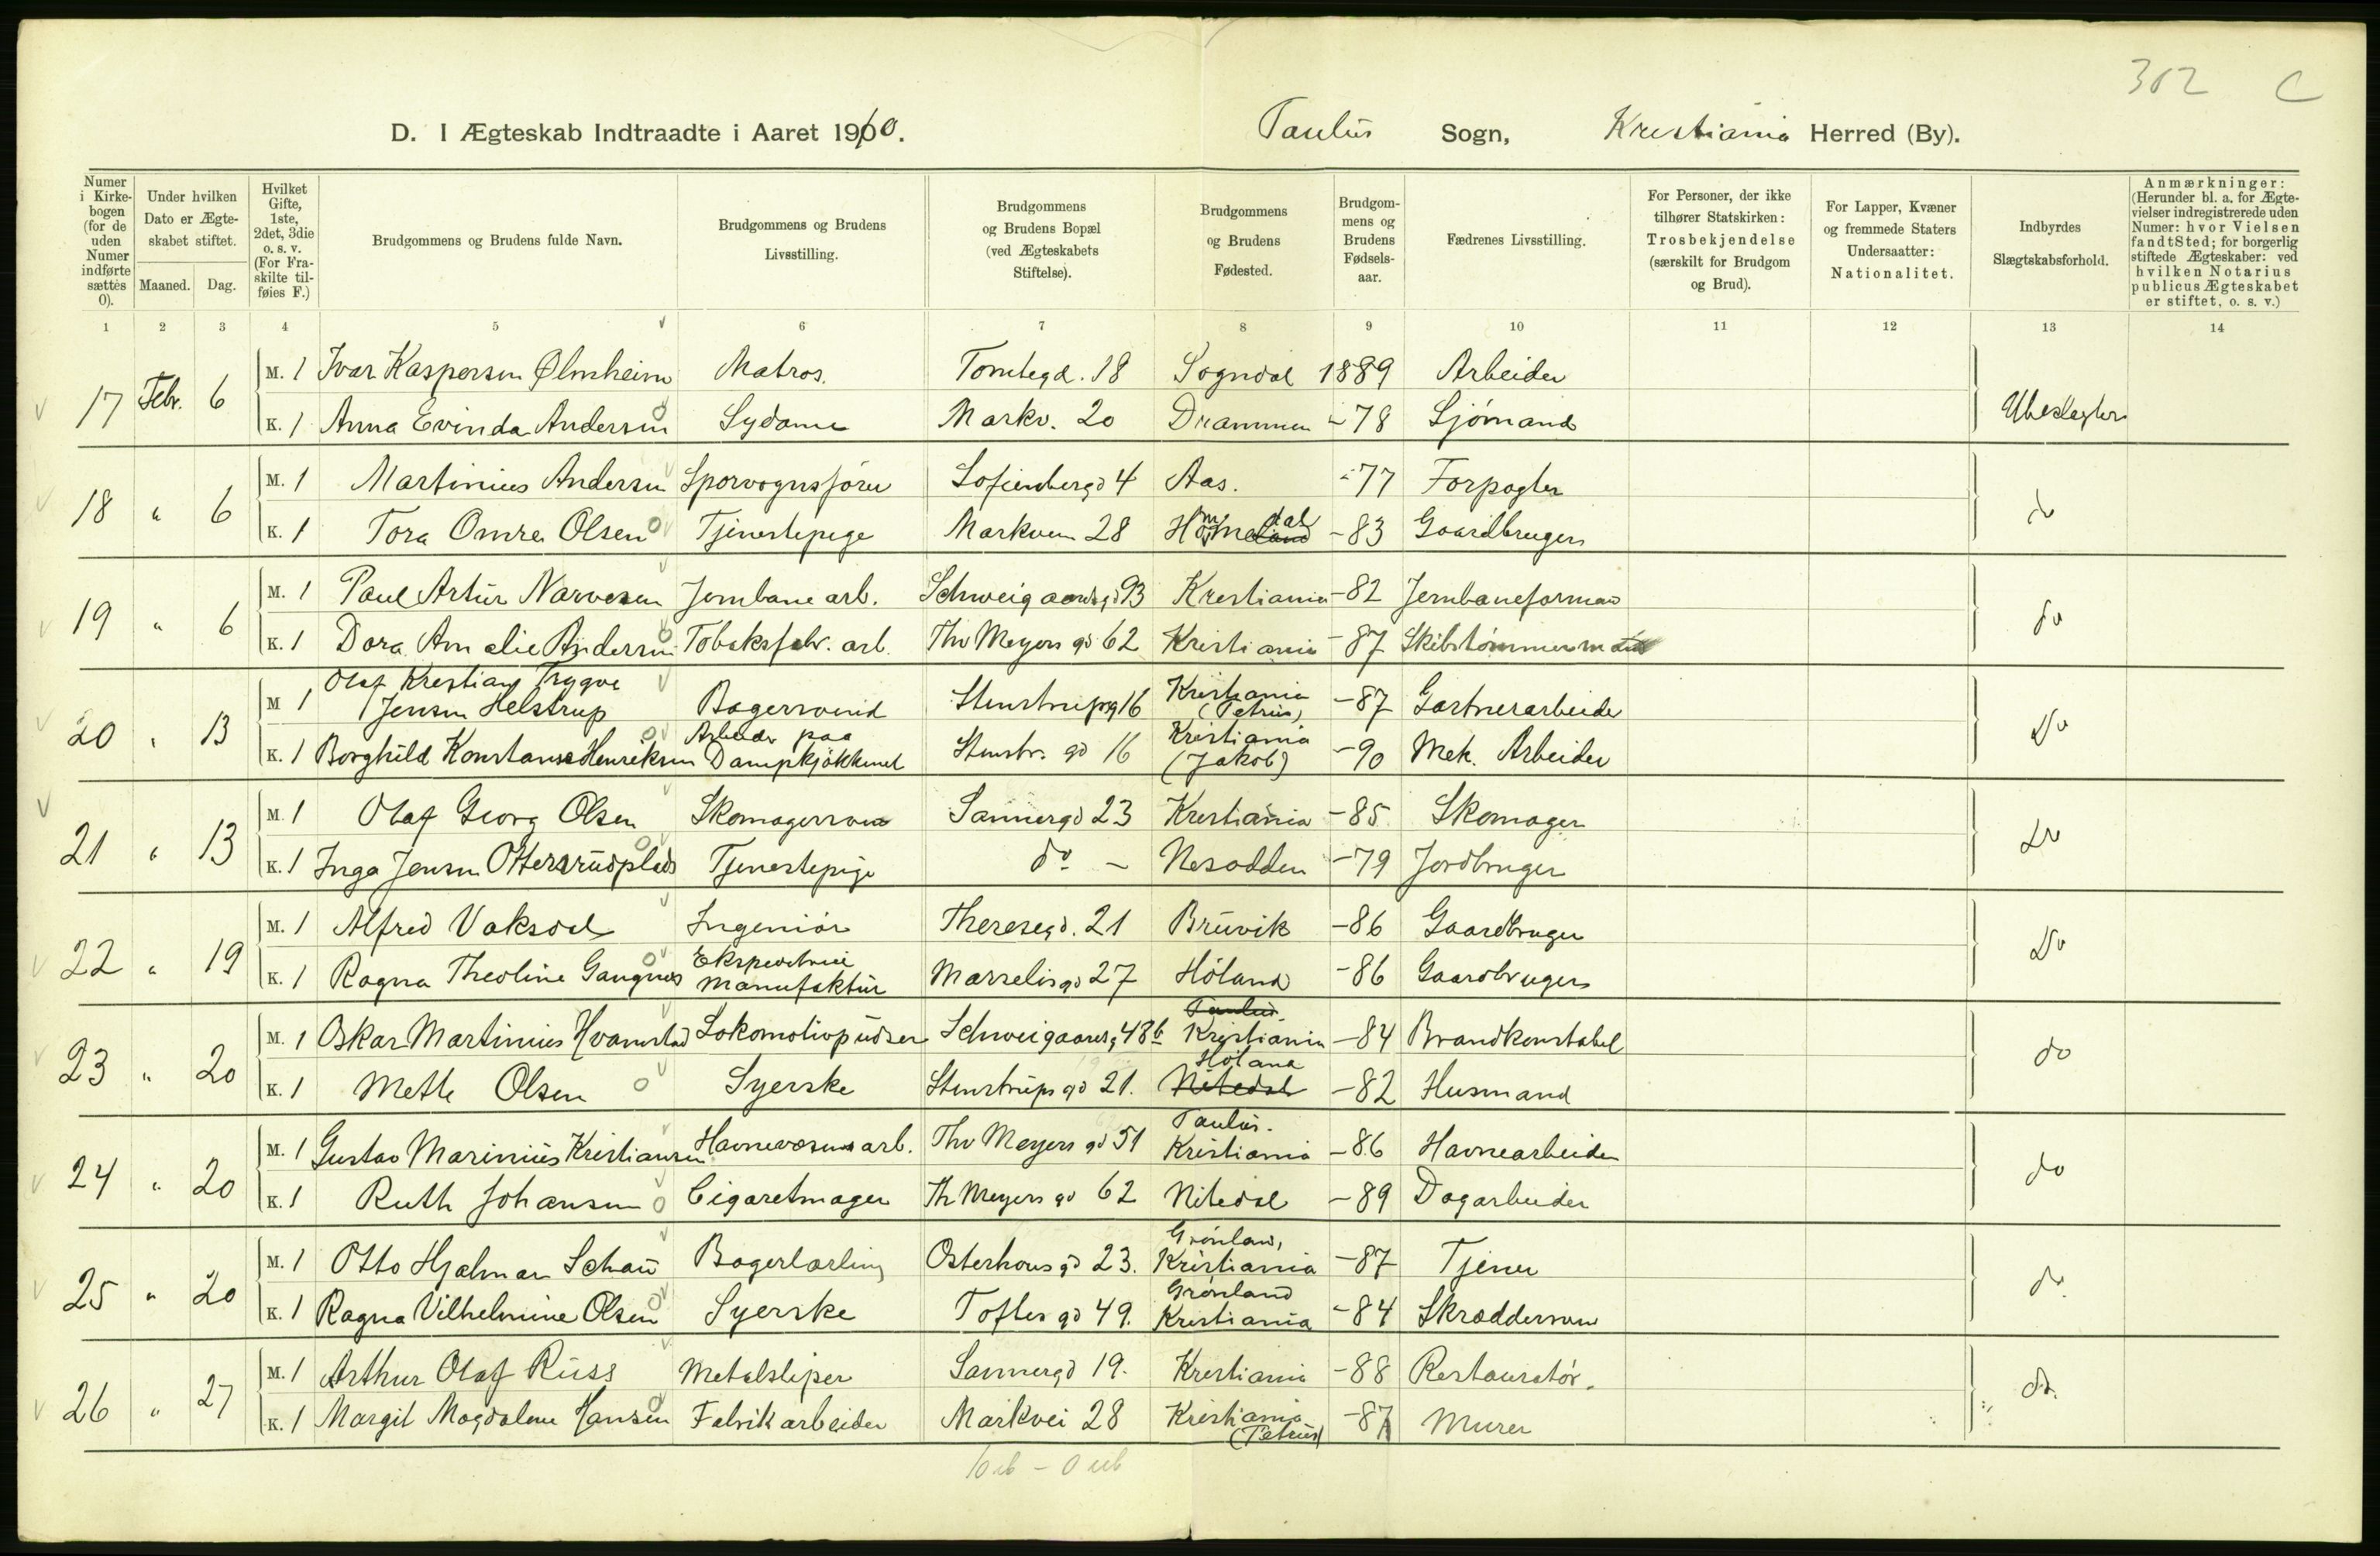 302 C
D. I Ægteskab Indtraadte i Aaret 1910. Paulus Sogn, Kristiania Herred (By).
Numer i Kirkebogen (for de uden Numer indførte sættes 0).
Under hvilken Dato er Ægteskabet stiftet.
Maaned. Dag.
Hvilket Gifte, 1ste, 2det, 3die o. s. v. (For Fraskilte tilføies F.)
Brudgommens og Brudens fulde Navn.
Brudgommens og Brudens Livsstilling.
Brudgommens og Brudens Bopæl (ved Ægteskabets Stiftelse).
Brudgommens og Brudens Fødested.
Brudgommens og Brudens Fødselsaar.
Fædrenes Livsstilling.
For Personer, der ikke tilhører Statskirken: Trosbekjendelse (særskilt for Brudgom og Brud).
For Lapper, Kvæner og fremmede Staters Undersaatter: Nationalitet.
Indbyrdes Slægtskabsforhold.
Anmærkninger: (Herunder bl. a. for Ægtevielser indregistrerede uden Numer: hvor Vielsen fandt Sted; for borgerlig stiftede Ægteskaber: ved hvilken Notarius publicus Ægteskabet er stiftet, o. s. v.)
1 2 3 4 5 6 7 8 9 10 11 12 13 14
17 Febr. 6 M. 1 Ivar Kaspersen Ølmheim Matros. Tomtegd. 18 Sogndal 1889 Arbeider
K. 1 Anna Evinda Andersen Sydame Markv. 20 Drammen -78 Sjómand Ubeslegtet
18 " 6 M. 1 Martinius Andersen Sporvognsförer Sofienbergd 4 Aas. -77 Forpagter
K. 1 Tora Omre Olsen Tjenestepige Markven 28 Hommedal -83 Gaardbruger do
19 " 6 M. 1 Paul Artur Narvesen Jernbane arb. Schweigaardsgd 93 Kristiania -82 Jernbaneformand
K. 1 Dora Amalie Andersen Tobaksfabr. arb. Thv Meyers gd 62 Kristiania -87 Skibstömmermand do
20 " 13 M 1 Olaf Kristian Trygve Jensen Helstrup Bagersvend Stenstrupsg 16 Kristiania (Petrus) -87 Gartnerarbeider
K. 1 Borghild Konstanse Henriksen Arbeider paa Dampkjökkenet Stenstr. gd 16 Kristiania (Jakob) -90 Mek. Arbeider Do
21 " 13 M. 1 Olaf Georg Olsen Skomagersvend Sannergd 23 Kristiania -85 Skomager
K. 1 Inga Jensen Ottersrudplads Tjenestepige do - Nesodden -79 Jordbruger Do
22 " 19 M. 1 Alfred Vaksdal Ingeniör Theresegd. 21 Bruvik -86 Gaardbruger
K. 1 Ragna Theoline Gangnes Ekspeditrice Manufaktur Marselisgd 27 Höland -86 Gaardbruger Do
23 " 20 M. 1 Oskar Martinius Hvamstad Lokomotivpudser Schweigaardsg 48b Paulus Kristiania -84 Brandkonstabel
K. 1 Mette Olsen Syerske Stenstrups gd 21. Höland Nitedal -82 Husmand do
24 " 20 M. 1 Gustav Marinius Kristiansen Havnevæsens arb. Thv Meyers gd 51 Paulus. Kristiania -86 Havnearbeider
K. 1 Ruth Johansen Cigaretmager Th Meyers gd 62 Nitedal -89 Dagarbeider do
25 " 20 M. 1 Otto Hjalmar Schau Bagerlærling Osterhausgd 23. Grönland, Kristiania -87 Tjener
K. 1 Ragna Vilhelmine Olsen Syerske Toftes gd 49. Grönland Kristiania -84 Skræddersvend do
26 " 27 M. 1 Arthur Olaf Russ Metalsliper Sannergd 19. Kristiania -88 Restauratör.
K. 1 Margit Magdalene Hansen Fabrikarbeider Markvei 28 Kristiania (Petrus) -87 Murer do.
10 ub - 0 ub